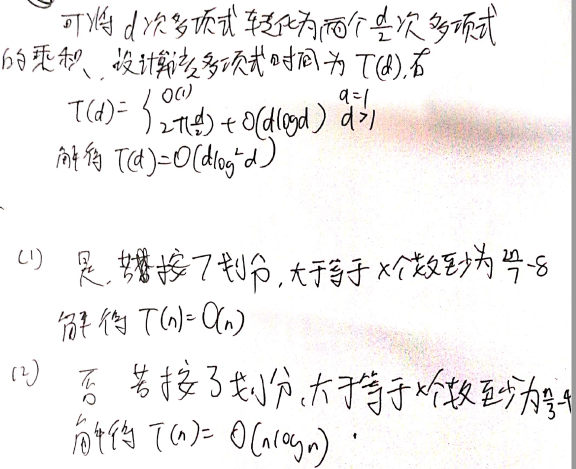 可将d次多项式转化为两个d/2次多项式
的乘积、设计算该多项式时间为T(d),有
T(d)={O(1) d=1
2T(d/2)+O(dlogd) d>1
解得 T(d)=O(dlog²d)
(1) 是.若按7划分,大于等于x个数至少为2n/7-8
解得 T(n)=O(n)
(2) 否 若按3划分,大于等于x个数至少为n/3-4
解得 T(n)=O(nlogn).